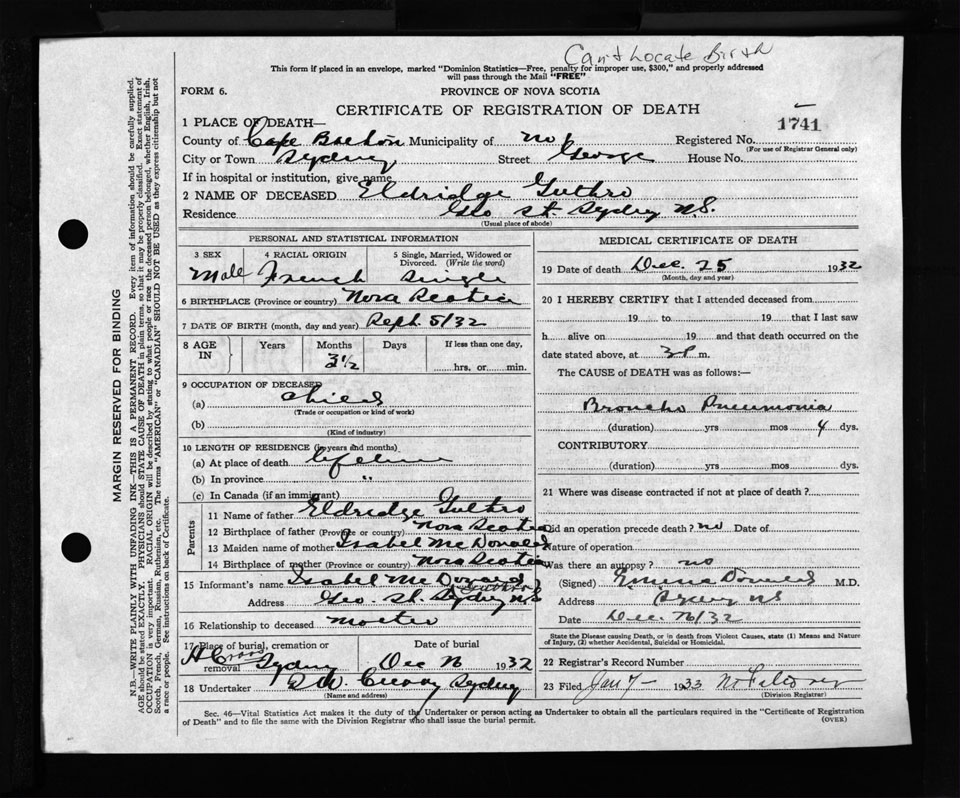 Can't Locate Birth
This form if placed in an envelope, marked "Dominion Statistics—Free, penalty for improper use, $300," and properly addressed
will pass through the Mail "FREE"
FORM 6. PROVINCE OF NOVA SCOTIA
CERTIFICATE OF REGISTRATION OF DEATH
1741
1 PLACE OF DEATH—
County of Cape Breton Municipality of No Registered No.
(For use of Registrar General only)
City or Town Sydney Street George House No.
If in hospital or institution, give name
2 NAME OF DECEASED Eldridge Guthro
Residence Geo St. Sydney N.S.
(Usual place of abode)
PERSONAL AND STATISTICAL INFORMATION
3 SEX 4 RACIAL ORIGIN 5 Single, Married, Widowed or Divorced. (Write the word)
Male French Single
6 BIRTHPLACE (Province or country) Nova Scotia
7 DATE OF BIRTH (month, day and year) Sept. 5/32
8 AGE IN Years Months Days If less than one day,
3½ hrs. or min.
9 OCCUPATION OF DECEASED
(a) child
(Trade or occupation or kind of work)
(b)
(Kind of industry)
10 LENGTH OF RESIDENCE (in years and months)
(a) At place of death lifetime
(b) In province "
(c) In Canada (if an immigrant)
Parents
11 Name of father Eldridge Guthro
12 Birthplace of father (Province or country) Nova Scotia
13 Maiden name of mother Isabel McDonald
14 Birthplace of mother (Province or country) Nova Scotia
15 Informant's name Isabel McDonald Guthro
Address Geo. St. Sydney N.S
16 Relationship to deceased mother
17 Place of burial, cremation or removal Date of burial
H Cross Sydney Dec 26 1932
18 Undertaker Sydney
(Name and address)
MEDICAL CERTIFICATE OF DEATH
19 Date of death Dec. 25 1932
(Month, day and year)
20 I HEREBY CERTIFY that I attended deceased from
19 to 19 that I last saw
h alive on 19 and that death occurred on the
date stated above, at 3 P m.
The CAUSE of DEATH was as follows:—
Broncho Pneumonia
(duration) yrs mos 4 dys.
CONTRIBUTORY
(duration) yrs mos dys.
21 Where was disease contracted if not at place of death?
Did an operation precede death? no Date of
Nature of operation
Was there an autopsy? no
(Signed) M.D.
Address Sydney NS
Date Dec. 26/32
State the Disease causing Death, or in death from Violent Causes, state (1) Means and Nature
of Injury, (2) whether Accidental, Suicidal or Homicidal.
22 Registrar's Record Number
23 Filed Jan 7 - 1933
(Division Registrar)
Sec. 46—Vital Statistics Act makes it the duty of the Undertaker or person acting as Undertaker to obtain all the particulars required in the "Certificate of Registration
of Death" and to file the same with the Division Registrar who shall issue the burial permit.
(OVER)
MARGIN RESERVED FOR BINDING
N.B.—WRITE PLAINLY WITH UNFADING INK—THIS IS A PERMANENT RECORD. Every item of information should be carefully supplied.
AGE should be stated EXACTLY. PHYSICIANS should STATE CAUSE OF DEATH in plain terms, so that it may be properly classified. Exact statement of
OCCUPATION is very important. RACIAL ORIGIN will be described by stating to what people or race the deceased person belonged, whether English, Irish,
Scotch, French, German, Russian, Ruthenian, etc. The terms "AMERICAN" or "CANADIAN" SHOULD NOT BE USED as they express citizenship but not
a race or people. See instructions on back of Certificate.